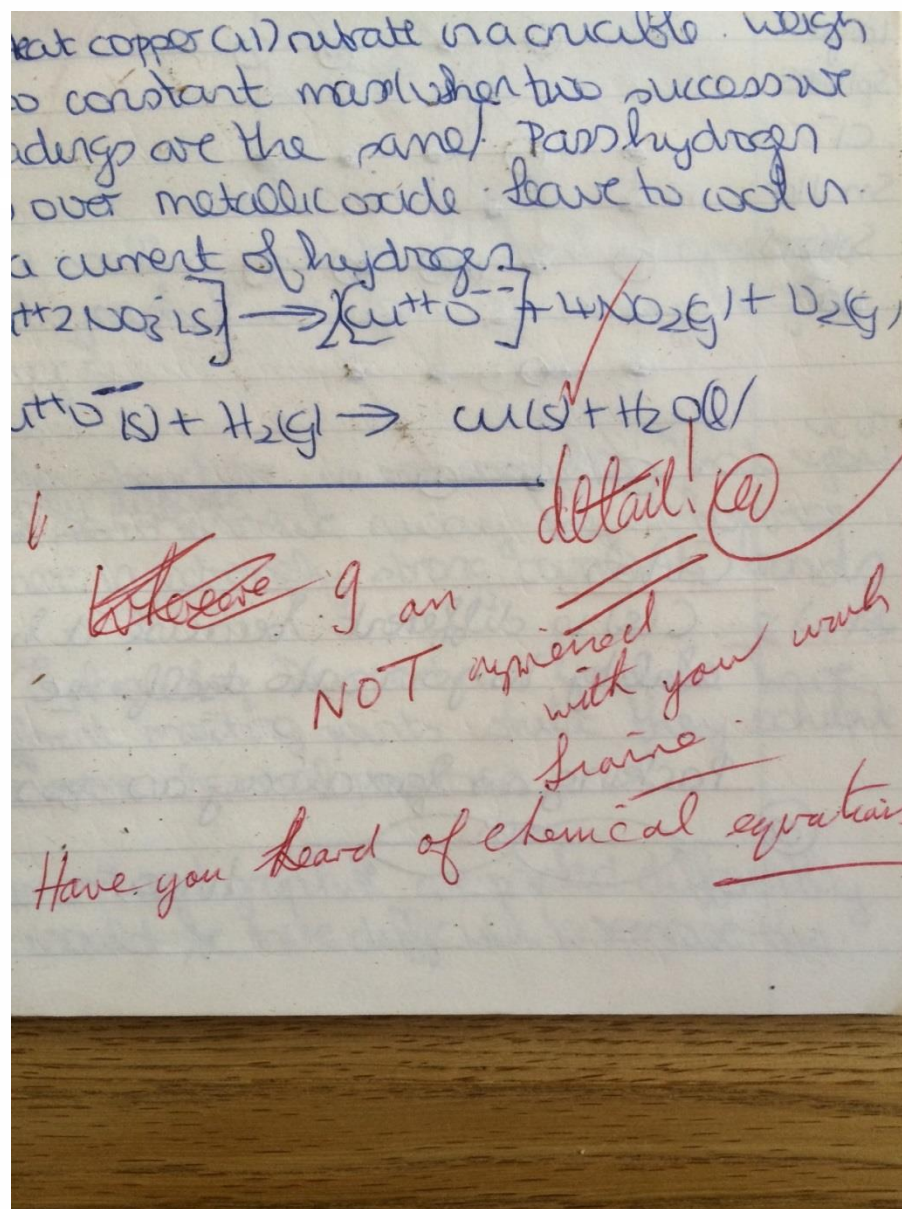 eat copper (II) nitrate in a crucible. Weigh
o constant mass (when two successive
adings are the same). Pass hydrogen
over metallic oxide. Leave to cool in
a current of hydrogen.
++2NO3-(s)] → 2[Cu++O--] + 4NO2(g) + O2(g)
u++O--(s) + H2(g) → Cu(s) + H2O(l)
detail!
I am
NOT impressed
with your work
Lorraine.
Have you heard of chemical equations